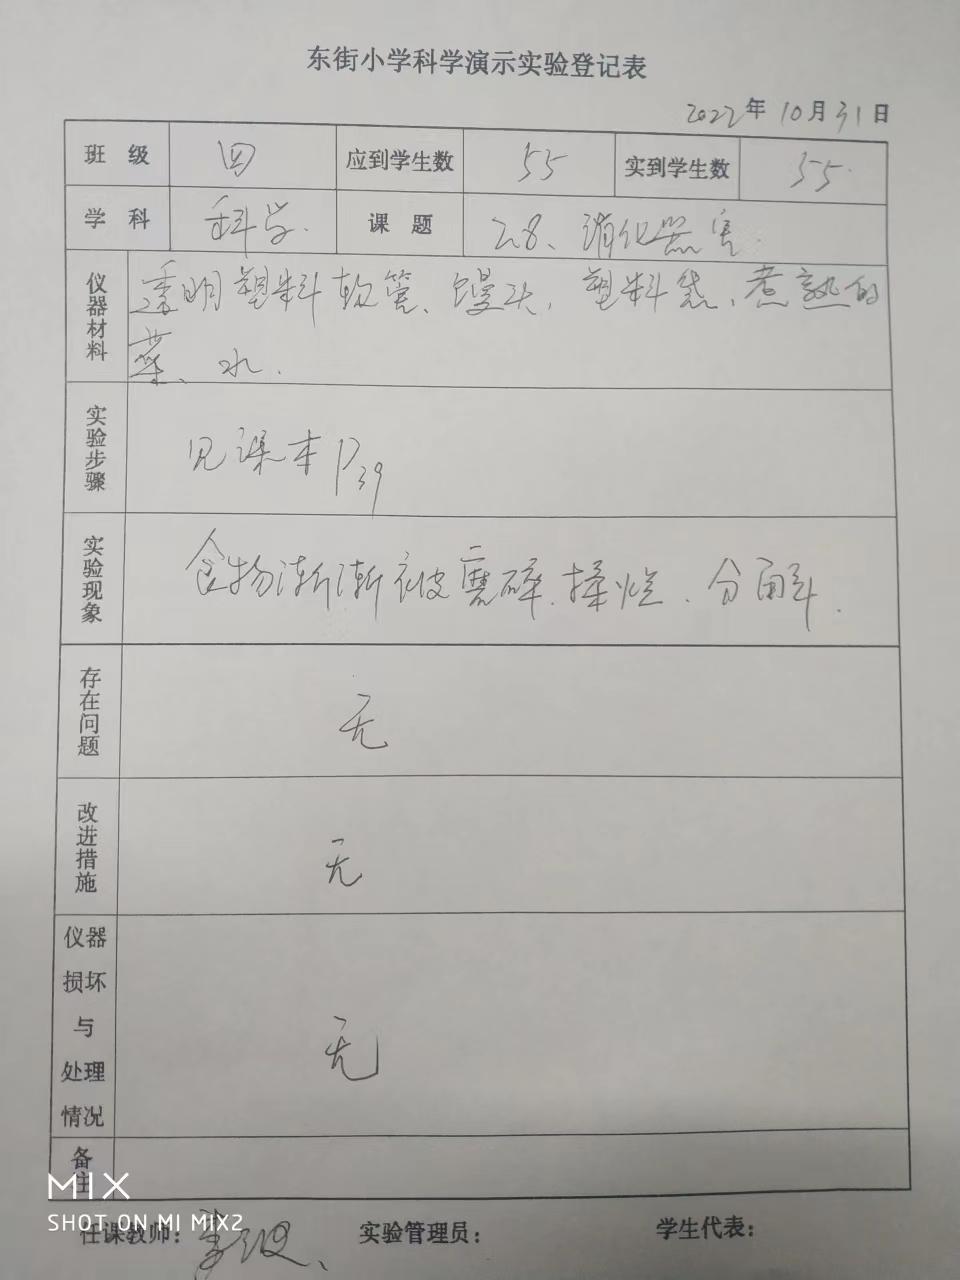 东街小学科学演示实验登记表
2022年 10月31日
班 级 四 应到学生数 55 实到学生数 55.
学 科 科学. 课 题 2.8、消化器官.
仪器材料 透明塑料软管、馒头、塑料袋、煮熟的
菜、水.
实验步骤 见课本P39
实验现象 食物渐渐被磨碎、揉烂、分解.
存在问题 无
改进措施 无
仪器
损坏
与
处理
情况 无
备注
MIX
SHOT ON MI MIX2
任课教师: 实验管理员: 学生代表: